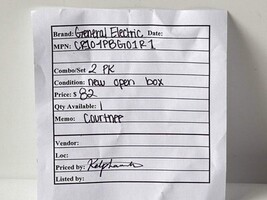 Brand: General Electric Date:
MPN: CR104PBG01R1
Combo/Set 2 PK
Condition: new open box
Price: $ 82
Qty Available: 1
Memo: Courtnee
Vendor:
Loc:
Priced by:
Listed by: